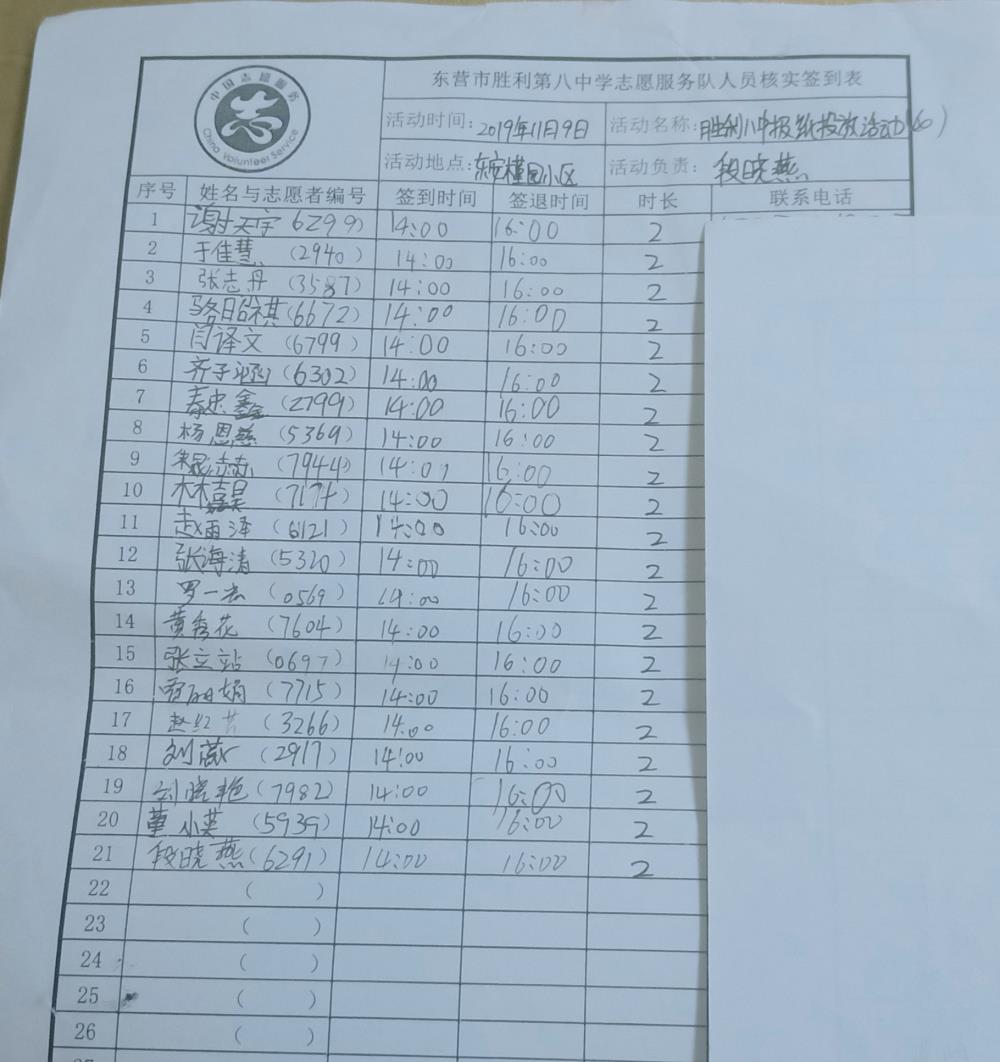 中国志愿服务
志
China Volunteer Service
东营市胜利第八中学志愿服务队人员核实签到表
活动时间: 2019年11月9日 活动名称: 胜利八中报纸投放活动(60)
活动地点: 东安槿园小区 活动负责: 段晓燕
序号 姓名与志愿者编号 签到时间 签退时间 时长 联系电话
1 谢天宇 6299) 14:00 16:00 2
2 于佳慧 (2940) 14:00 16:00 2
3 张志丹 (3587) 14:00 16:00 2
4 骆昭祺 (6672) 14:00 16:00 2
5 闫译文 (6799) 14:00 16:00 2
6 齐子涵 (6302) 14:00 16:00 2
7 秦忠鑫 (2799) 14:00 16:00 2
8 杨恩慈 (5369) 14:00 16:00 2
9 (7944) 14:00 16:00 2
10 林嘉昊 (7174) 14:00 16:00 2
11 赵雨泽 (6121) 14:00 16:00 2
12 张海清 (5320) 14:00 16:00 2
13 罗一 (0569) 14:00 16:00 2
14 黄秀花 (7604) 14:00 16:00 2
15 张立站 (0697) 14:00 16:00 2
16 丽娟 (7715) 14:00 16:00 2
17 赵红 (3266) 14:00 16:00 2
18 刘薇 (2917) 14:00 16:00 2
19 刘晓艳 (7982) 14:00 16:00 2
20 董小英 (5939) 14:00 16:00 2
21 段晓燕 (6291) 14:00 16:00 2
22 ( )
23 ( )
24 ( )
25 ( )
26 ( )